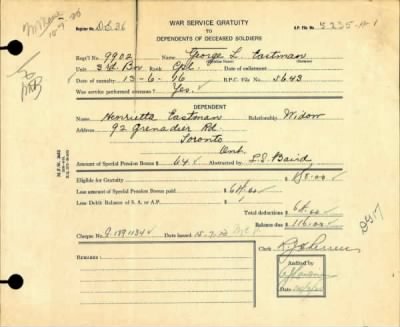 WAR SERVICE GRATUITY
TO
DEPENDENTS OF DECEASED SOLDIERS
Register No. D.S. 26
S.P. File No. 5235-H-1
Regt'l No. 9902 Name George L. Eastman
(Christian Name) (Surname)
Unit 3rd. Bn Rank Cpl. Date of enlistment
Date of casualty 13-6-16 B.P.C. File No. 5643
Was service performed overseas? Yes.
DEPENDENT
Name Henrietta Eastman Relationship Widow
Address 92 Grenadier Rd.
Toronto
Ont.
Amount of Special Pension Bonus $ 64 Abstracted by L.S. Baird
Eligible for Gratuity $ 180.00
Less amount of Special Pension Bonus paid $ 64.00
Less Debit Balance of S. A. or A.P. $
Total deductions $ 64.00
Balance due $ 116.00
Cheque No. Date issued 15.7.20
Clerk
REMARKS:
Audited by
Date